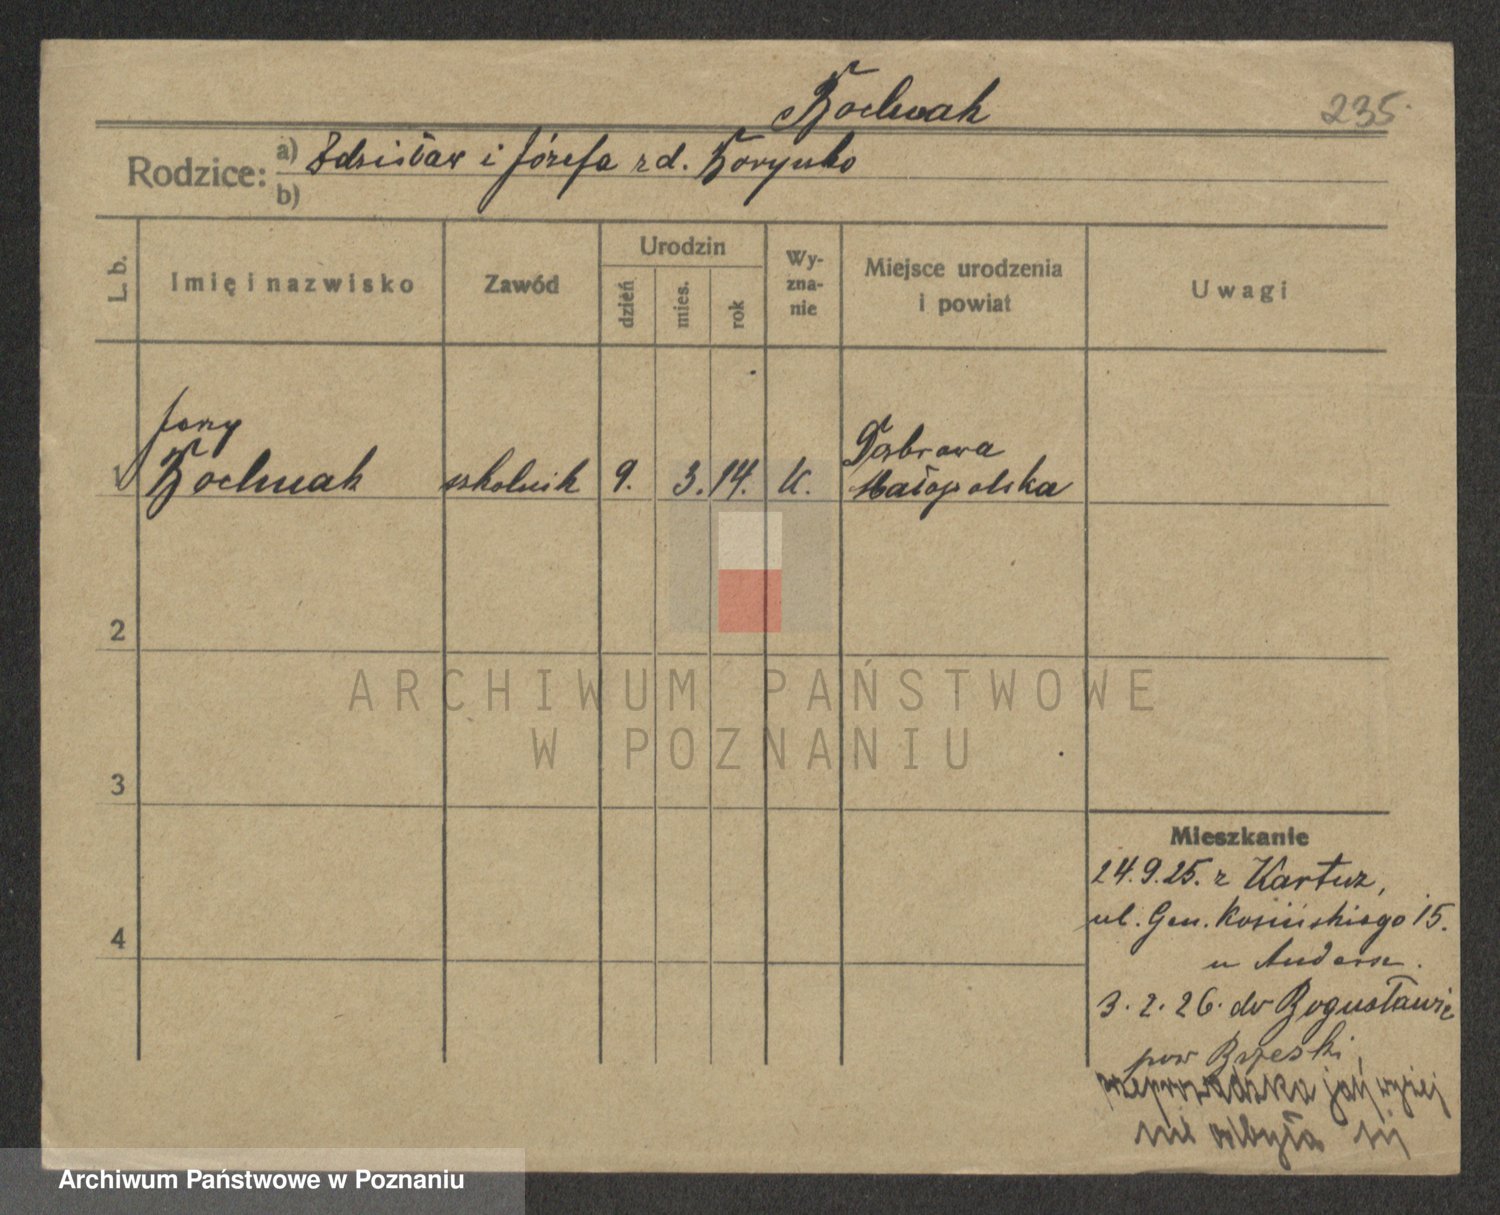 Bochnak
235.
Rodzice: a) Zdzisław i Józefa z d. Korynko
b)
L. b.
Imię i nazwisko
Zawód
Urodzin
dzień
mies.
rok
Wy-
zna-
nie
Miejsce urodzenia
i powiat
Uwagi
Jerzy
1 Bochnak szkolnik 9. 3. 14. k. Dąbrowa
Małopolska
2
3
4
ARCHIWUM PAŃSTWOWE
W POZNANIU
Mieszkanie
24.9.25. z Kartuz,
ul. Gen. Kosińskiego 15.
u Anders.
3.2.26. do Bogusławic
pow Brzeski,
przeprowadzka jak wyżej
nie odbyła się
Archiwum Państwowe w Poznaniu